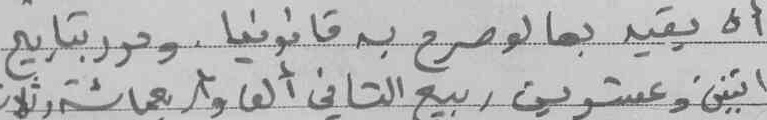 أن يقيد بما لو صرح به قانونيا. وحرر بتاريخ
اثنين وعشرين ربيع الثاني ألف وأربعمائة وثلاث